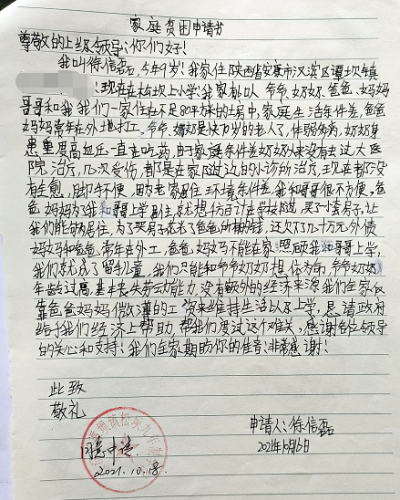 家庭贫困申请书
尊敬的上级领导:你们好!
我叫徐信磊,今年9岁!我家住陕西省安康市汉滨区谭坝镇
!现在在上小学!我家都以 爷爷、奶奶、爸爸、妈妈
哥哥和我 我们一家住在不足80平方米的土房中,家庭生活条件差,爸爸
妈妈常年在外地打工,爷爷、奶奶是快70岁的老人了,体弱多病,奶奶身
患重度高血压一直在吃药,由于家庭条件差奶奶从来没有去过大医
院治疗,几次受伤,都是在家附近边的小诊所治疗,现在都没
有全愈,脚部不便,因为老家居住环境条件差,我和哥哥很不方便,爸
爸、妈妈为我和哥哥上学居住,就想仿百计在学校附近买了小套房子,让
我们能够有居住,为了买房子花光了爸爸所有的钱,还欠了几十万元外债
妈妈和爸爸常年在外工,爸爸妈妈不能在家照顾我和哥哥上学,
我们就成了留守儿童,我们只能和爷爷奶奶相依为命,爷爷奶奶
年龄过高,基本丧失劳动能力,没有额外的经济来源,我们全家仅
靠爸爸妈妈微薄的工资来维持生活以及上学,恳请政府
给于我们经济上帮助,帮我们度过这个难关,感谢各位领导
的关心和支持!我们全家期盼你的佳音!非常感谢!
此致
敬礼
申请人:徐信磊
2021年10月6日
同意申请
2021.10.18